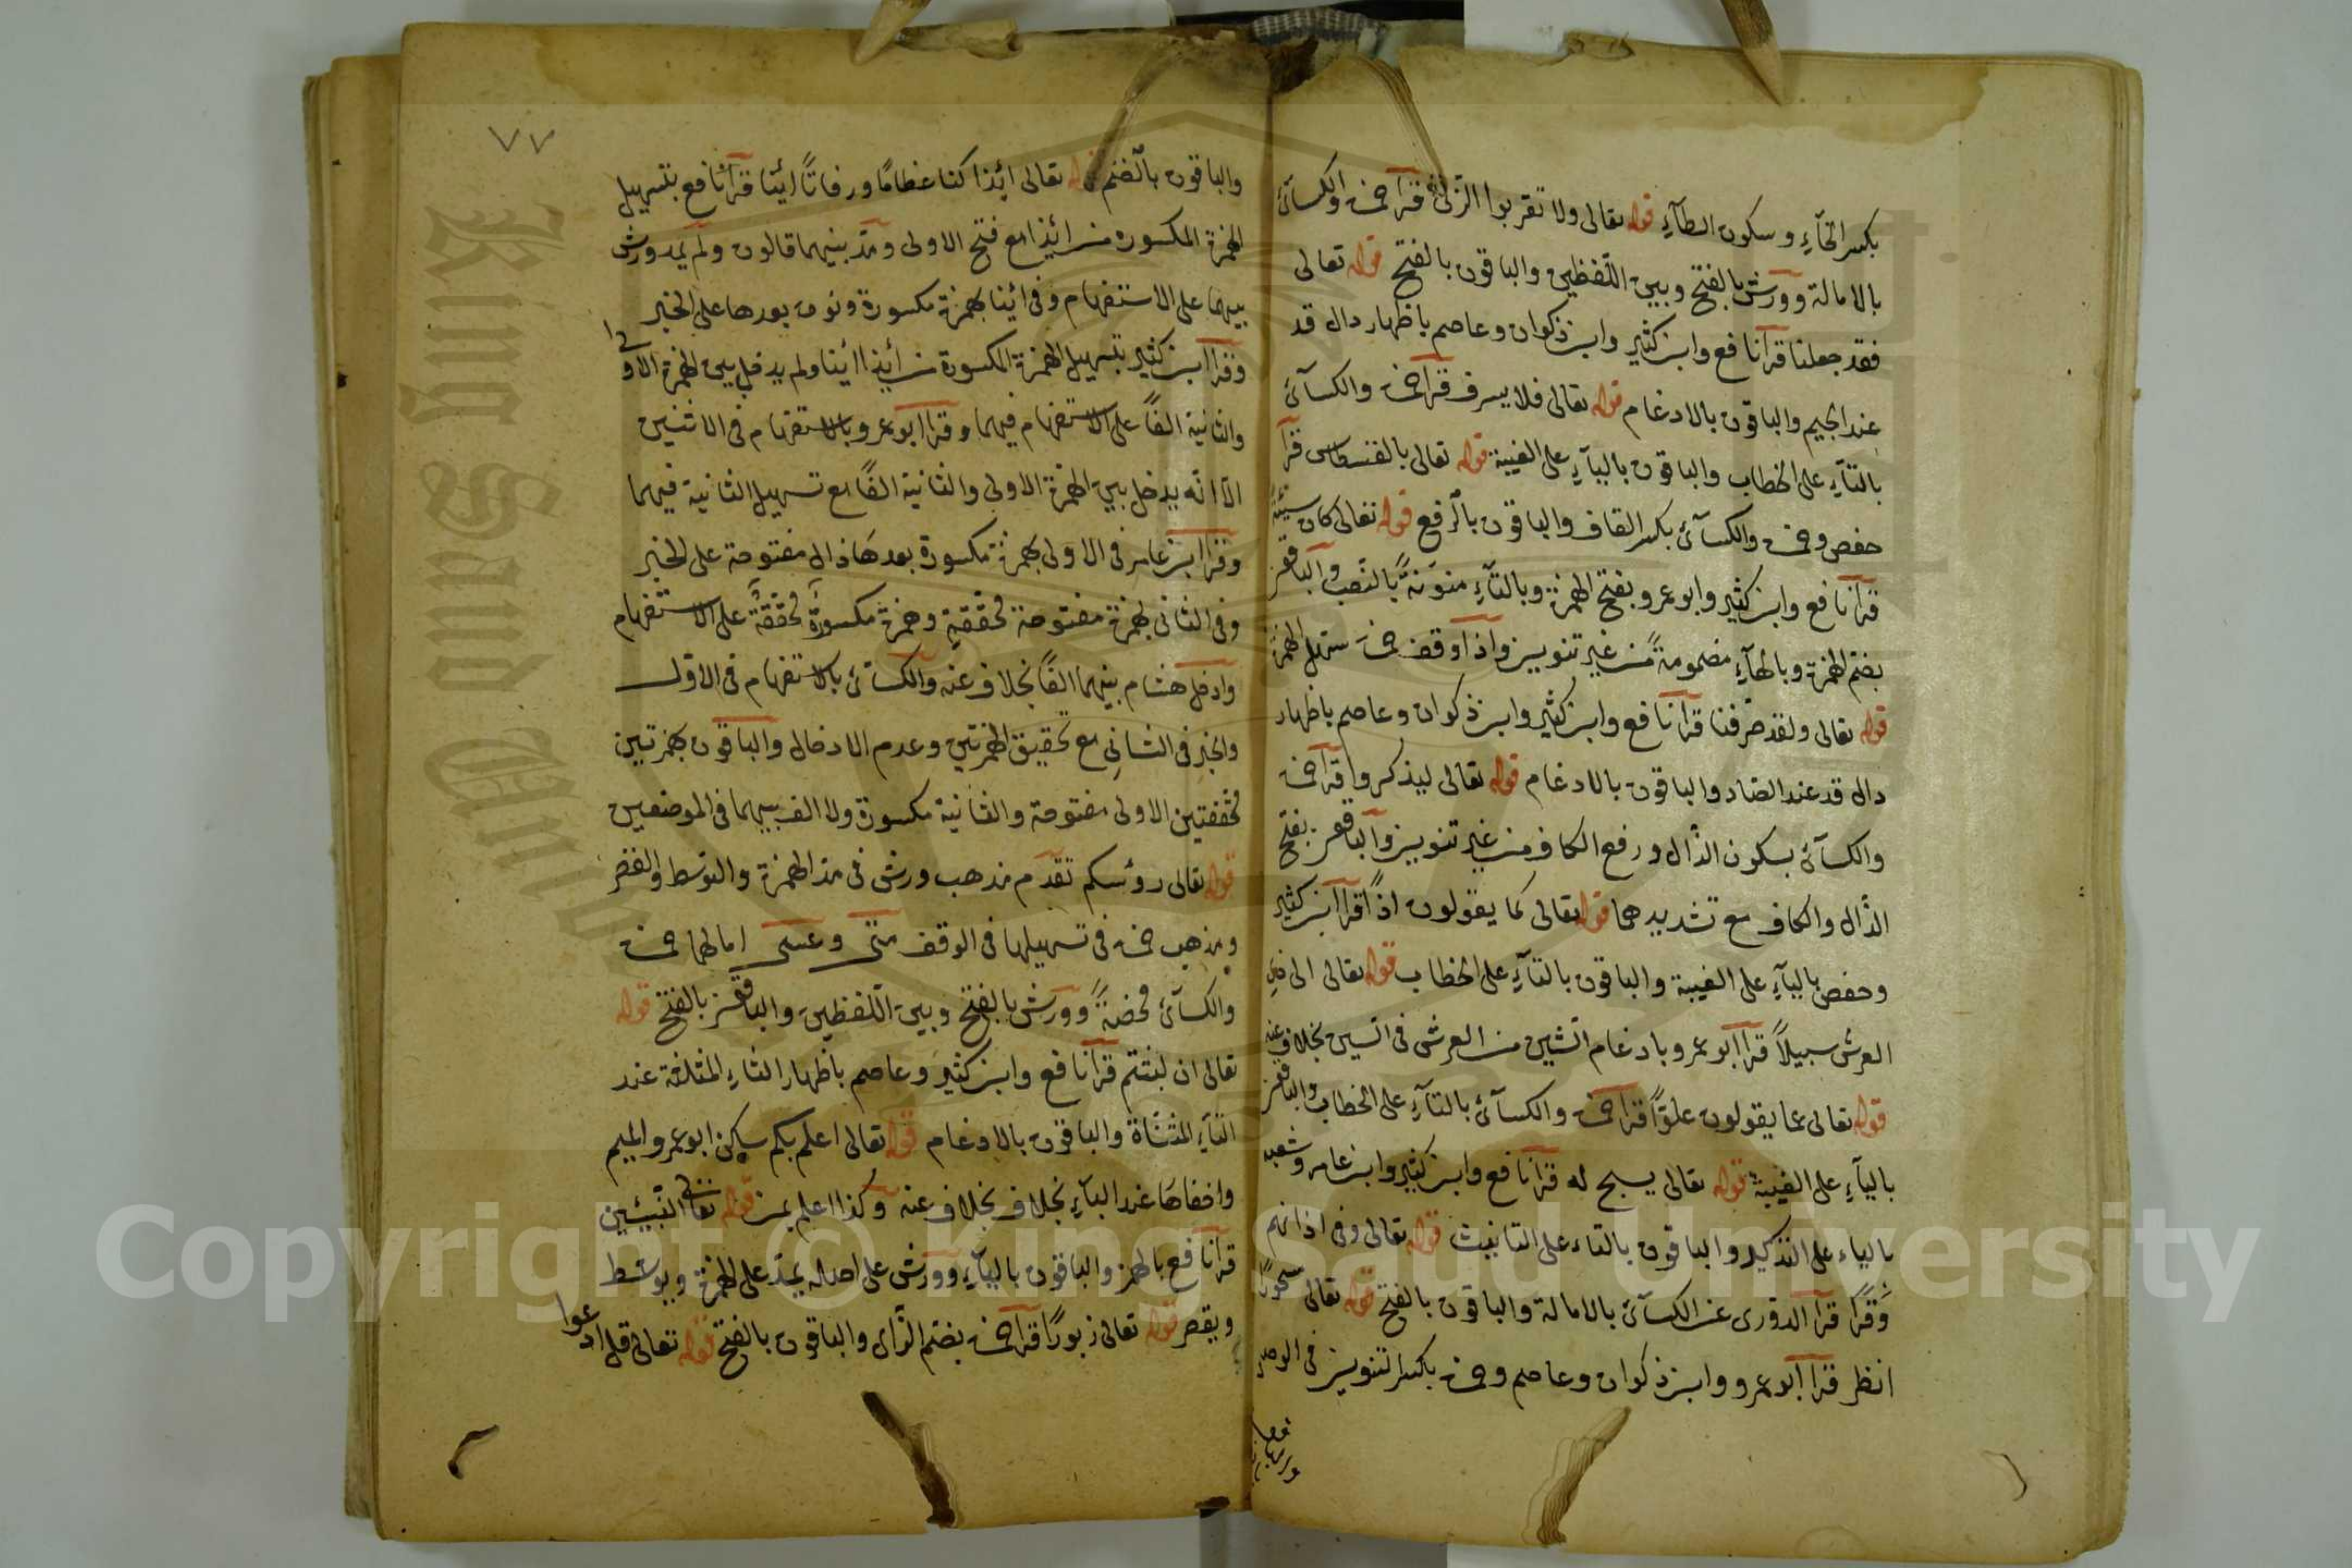 بكسر الخآء وسكون الطآء قوله تعالى ولا تقربوا الزنى قرأ حمزة والكسآئى
بالامالة وورش بالفتح وبين اللفظين والباقون بالفتح قوله تعالى
فقد جعلنا قرأ نافع وابن كثير وابن ذكوان وعاصم باظهار دال قد
عند الجيم والباقون بالادغام قوله تعالى فلا يسرف قرأ حمزة والكسآئى
بالتآء على الخطاب والباقون باليآء على الغيبة قوله تعالى بالقسطاس قرأ
حفص وحمزة والكسآئى بكسر القاف والباقون بالرفع قوله تعالى كان سيئة
قرأ نافع وابن كثير وابو عمرو بفتح الهمزة وبالتآء منونة بالنصب والباقون
بضم الهمزة وبالهآء مضمومة من غير تنوين واذا وقف حمزة سهل الهمزة
قوله تعالى ولقد صرفنا قرأ نافع وابن كثير وابن ذكوان وعاصم باظهار
دال قد عند الصاد والباقون بالادغام قوله تعالى ليذكروا قرأ حمزة
والكسآئى بسكون الذال ورفع الكاف من غير تنوين والباقون بفتح
الذال والكاف مع تشديدهما قوله تعالى كما يقولون اذًا قرأ ابن كثير
وحفص باليآء على الغيبة والباقون بالتآء على الخطاب قوله تعالى الى ذى
العرش سبيلاً قرأ ابو عمرو بادغام الشين من العرش فى السين بخلاف عنه
قوله تعالى عما يقولون علوًا قرأ حمزة والكسآئى بالتآء على الخطاب والباقون
باليآء على الغيبة قوله تعالى يسبح له قرأ نافع وابن كثير وابن عامر وشعبه
بالياء على التذكير والباقون بالتاء على التانيث قوله تعالى وفى اذانهم
وقرًا قرأ الدورى عن الكسآئى بالامالة والباقون بالفتح قوله تعالى مسحورًا
انظر قرأ ابو عمرو وابن ذكوان وعاصم وحمزة بكسر التنوين فى الوصل
والباقون
٧٧
والباقون بالضم قوله تعالى ائذا كنا عظامًا ورفاتًا ائنا قرأ نافع بتسهيل
الهمزة المكسوره من ائذا مع فتح الاولى ومد بينهما قالون ولم يمد ورش
بينهما على الاستفهام وفى ائنا بهمزة مكسورة ونون بعدها على الخبر
وقرأ ابن كثير بتسهيل الهمزة المكسورة من أيذا أينا ولم يدخل بين الهمزة الاولى
والثانية الفًا على الاستفهام فيهما وقرأ ابو عمرو بالاستفهام فى الاثنين
الا انه يدخل بين الهمزة الاولى والثانية الفًا مع تسهيل الثانية فيهما
وقرأ ابن عامر فى الاولى بهمزة مكسورة بعدها ذال مفتوحة على الخبر
وفى الثانى بهمزة مفتوحة محققةٍ وهمزة مكسورةٍ محققة على الاستفهام
وادخل هشام بينهما الفًا بخلاف عنه والكسآئى بالاستفهام فى الاول
والخبر فى الثانى مع تحقيق الهمزتين وعدم الادخال والباقون بهمزتين
محققتين الاولى مفتوحة والثانية مكسورة ولا الف بينهما فى الموضعين
قوله تعالى رؤسكم تقدم مذهب ورش فى مد الهمزة والتوسط والقصر
ومذهب حمزة فى تسهيلها فى الوقف متى وعسى امالهما حمزة
والكسآئى محضةً وورش بالفتح وبين اللفظين والباقون بالفتح قوله
تعالى ان لبثتم قرأ نافع وابن كثير وعاصم باظهار الثاء المثلثة عند
التآء المثناة والباقون بالادغام قوله تعالى اعلم بكم سكن ابو عمرو الميم
واخفاها عند البآء بخلاف بخلاف عنه وكذا اعلم بمن قوله تعالى النبيئين
قرأ نافع بالهمز والباقون باليآء وورش على اصله يمد على الهمزة ويوسط
ويقصر قوله تعالى زبورًا قرأ حمزة بضم الزاى والباقون بالفتح قوله تعالى قل ادعوا
King Saud University
Copyright © King Saud University